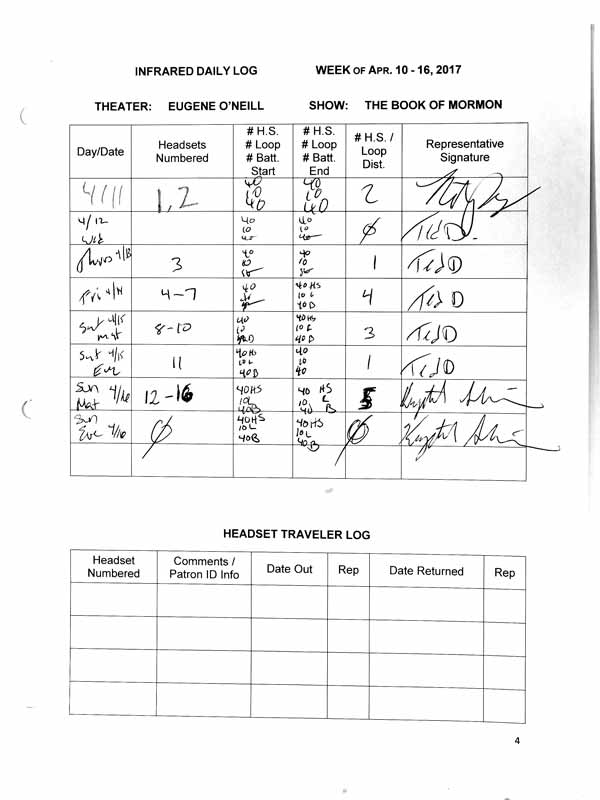 INFRARED DAILY LOG WEEK OF APR. 10 - 16, 2017
THEATER: EUGENE O'NEILL SHOW: THE BOOK OF MORMON
Day/Date Headsets Numbered # H.S. # Loop # Batt. Start # H.S. # Loop # Batt. End # H.S. / Loop Dist. Representative Signature
4/11 1,2 40 10 40 40 10 40 2
4/12 Wed 40 10 40 40 10 40 ∅ Ted D.
Thurs 4/13 3 40 10 40 10 1 Ted D
Fri 4/14 4-7 40 40 HS 10 L 40 B 4 Ted D
Sat 4/15 mat 8-10 40 10 40 HS 10 L 40 B 3 Ted D
Sat 4/15 Eve 11 40 HS 10 L 40 B 40 10 40 1 Ted D
Sun Mat 4/16 12-16 40HS 10L 40B 40 HS 10 L 40 B 5 Krystal
Sun Eve 4/16 ∅ 40HS 10L 40B 40HS 10L 40B ∅ Krystal
HEADSET TRAVELER LOG
Headset Numbered Comments / Patron ID Info Date Out Rep Date Returned Rep
4